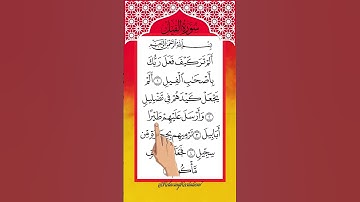 سورة الفيل
بِسْمِ اللهِ الرَّحْمٰنِ الرَّحِيْمِ
أَلَمْ تَرَ كَيْفَ فَعَلَ رَبُّكَ
بِأَصْحَابِ الْفِيلِ ۝ أَلَمْ
يَجْعَلْ كَيْدَهُمْ فِي تَضْلِيلٍ
۝ وَأَرْسَلَ عَلَيْهِمْ طَيْرًا
أَبَابِيلَ ۝ تَرْمِيهِمْ مِنْ
سِجِّيلٍ ۝